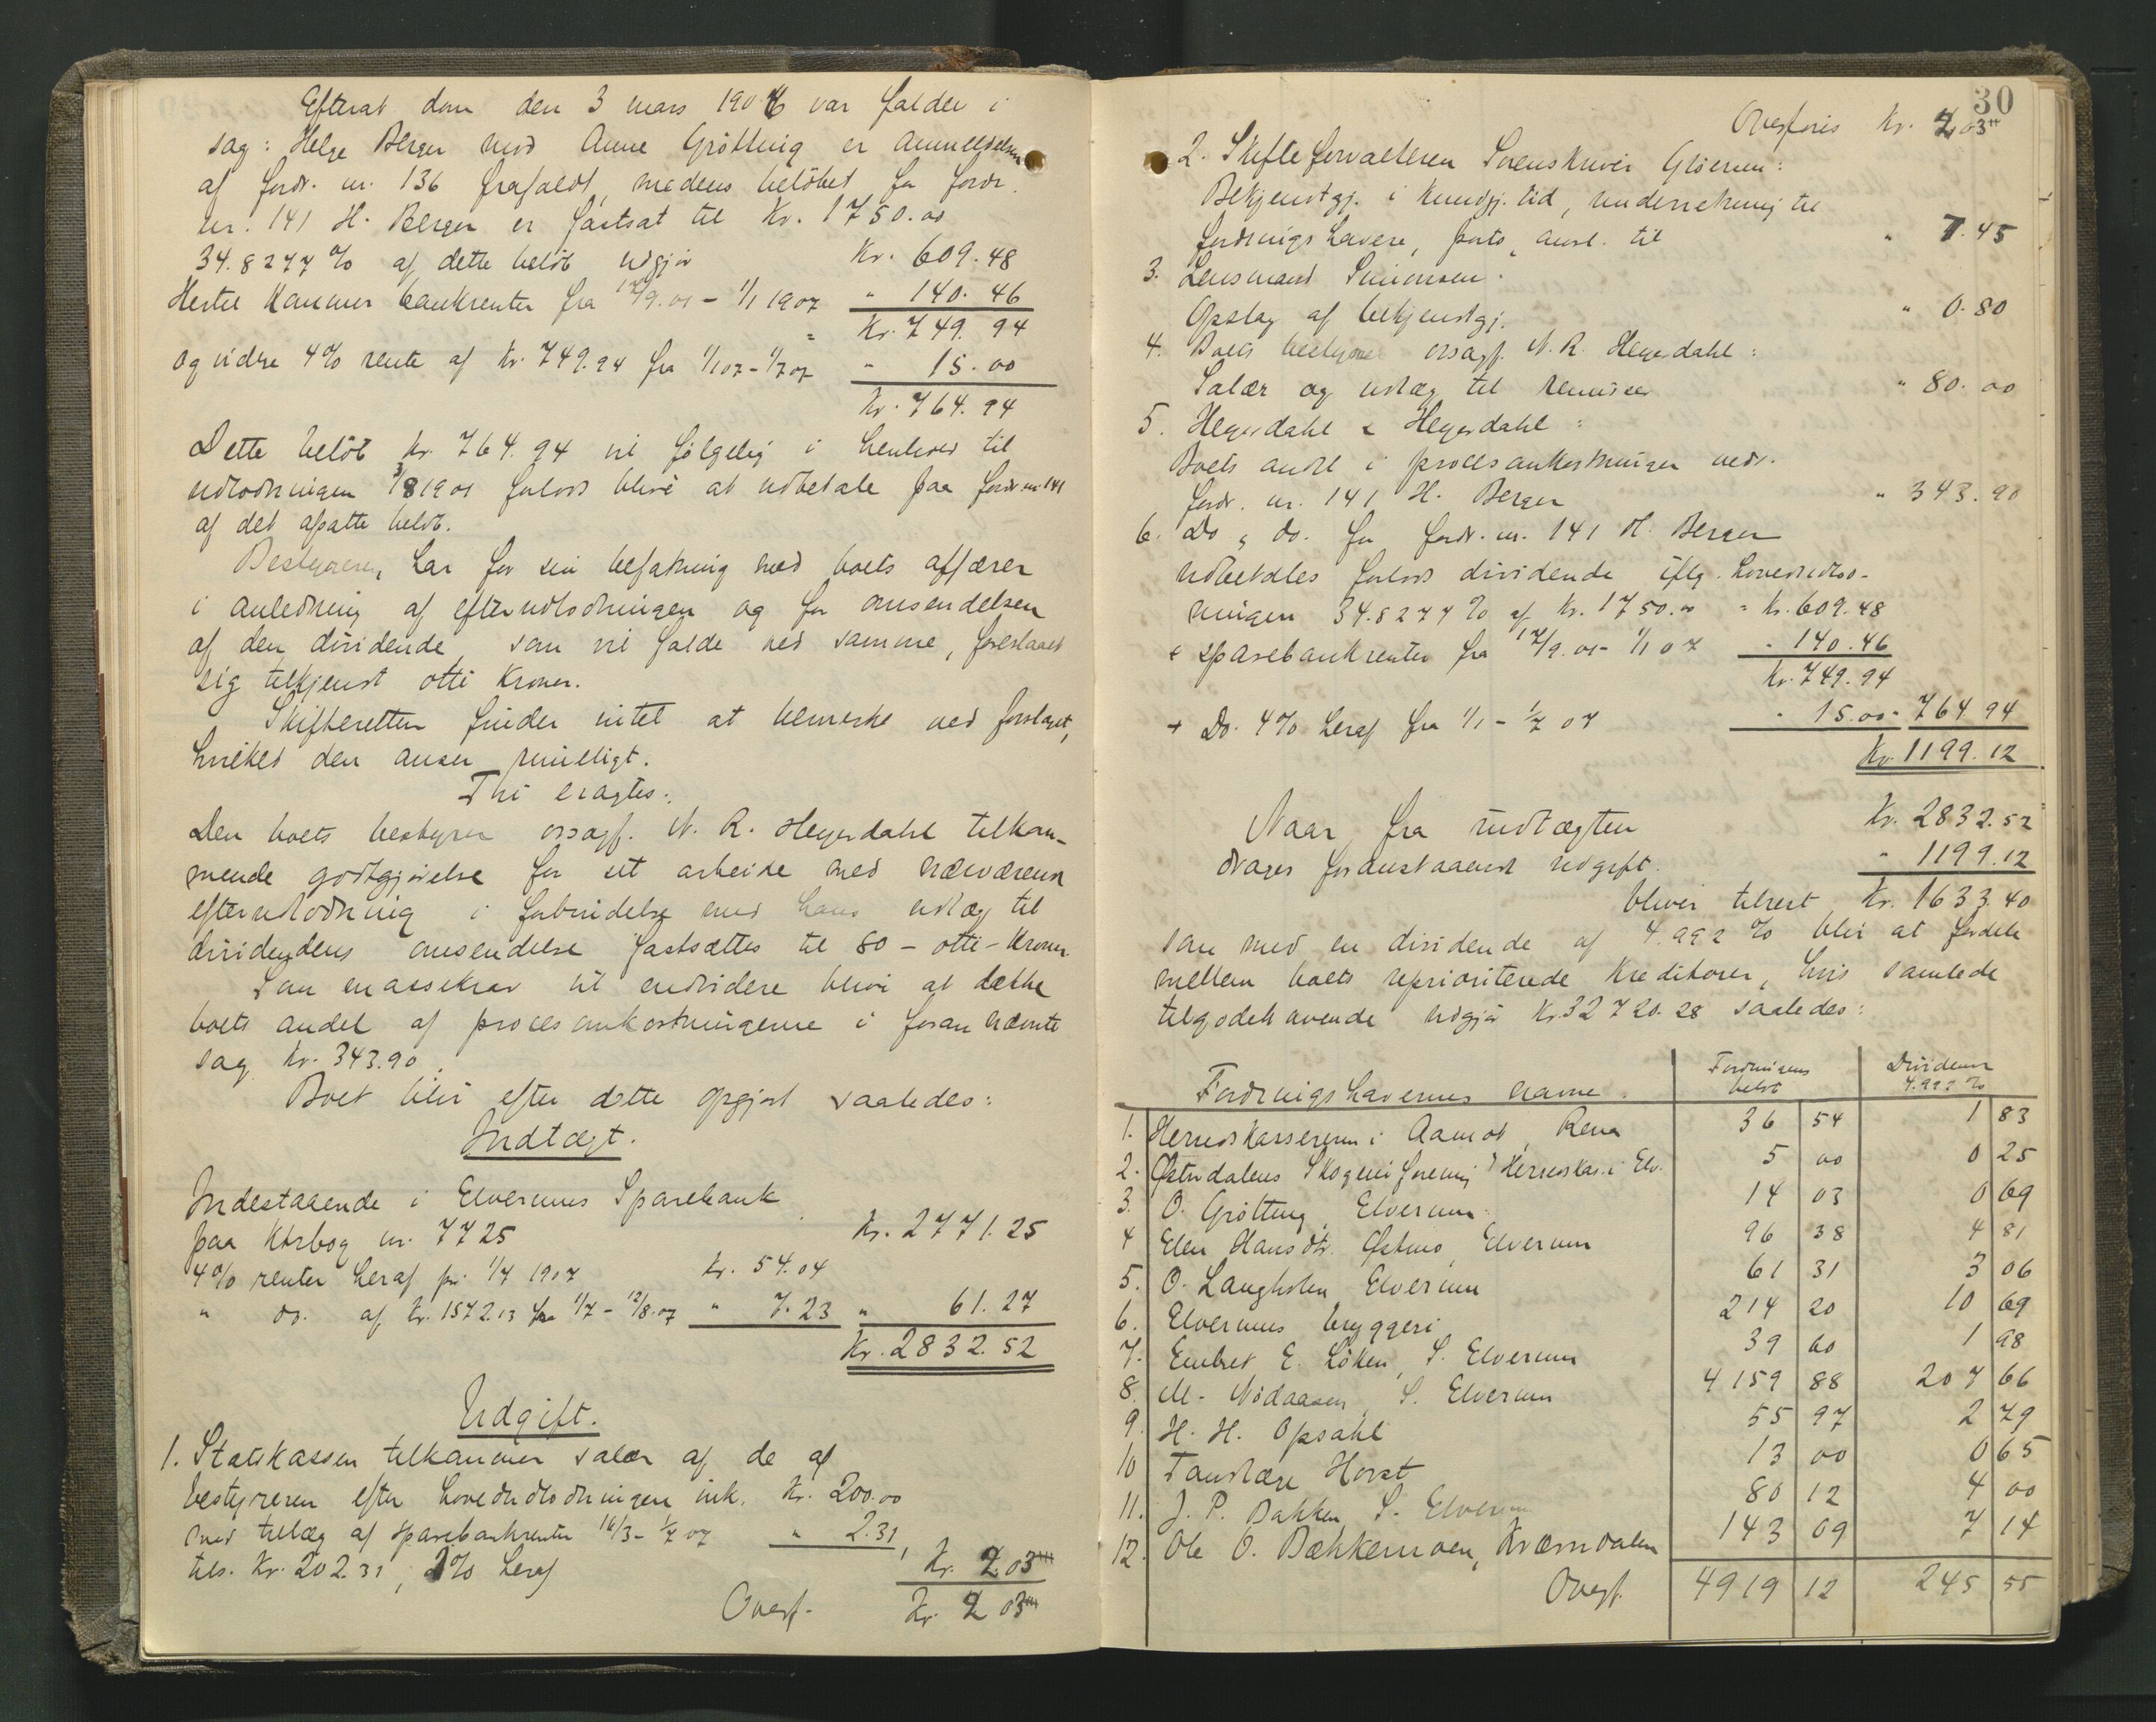 Efterat dom den 3 mars 1906 var falden i
sag: Helge Berger mod Anne Grøtting er anmeldelsen
af fordr. nr. 136 frafaldt, medens beløbet for fordr.
nr. 141 H. Berger er fastsat til Kr. 1750.00
34.8277 % af dette beløb udgjør Kr. 609.48
Hertil kommer bankrenter fra 17/9.01 - 1/1 1907 " 140.46
= Kr. 749.94
og videre 4% rente af Kr. 749.94 fra 1/1 07 - 1/7 07 " 15.00
Kr. 764.94
Dette beløb Kr. 764.94 vil følgelig i henhold til
udlodningen 3/8 1901 forlods blive at udbetale paa fordr. nr. 141
af det afsatte beløb.
Bestyreren har for sin befatning med boets affærer
i anledning af efterudlodningen og for omsendelsen
af den dividende, som vil falde ved samme, foreslaaet
sig tilkjendt otti Kroner.
Skifteretten finder intet at bemerke ved forslaget,
hvilket den anser rimeligt.
Thi eragtes:
Den boets bestyrer orsagf. N. R. Hegerdahl tilkom-
mende godtgjørelse for sit arbeide med nærværende
efterudlodning i forbindelse med hans udlæg til
dividendens omsendelse fastsættes til 80 - otti - Kroner
Som massekrav vil endvidere blive at dække
boets andel af procesomkostningerne i foran nævnte
sag Kr. 343.90.
Boet blir efter dette opgjort saaledes:
Indtægt.
Indestaaende i Elverums Sparebank
paa Ktrbog nr. 7725 Kr. 2771.25
4% renter heraf pr. 1/7 1907 Kr. 54.04
" do. af Kr. 1572.13 fra 1/7 - 12/8.07 " 7.23 " 61.27
Kr. 2832.52
Udgift.
1. Statskassen tilkommer salær af de af
bestyreren efter hovedudlodningen ink. Kr. 200.00
med tillæg af sparebankrenter 16/3 - 1/7 07 " 2.31,
tils. Kr. 202.31, 1% heraf Kr. 2.03
Overf. Kr. 2.03
30
Overføres Kr. 2.03
2. Skifteforvalteren Sorenskriver Gløersen:
Bekjendtgj. i Kundgj. tid, underretning til
fordringshavere, porto, anvl. til " 7.45
3. Lensmand Simensen:
Opslag af bekjendtgj. " 0.80
4. Boets bestyrer orsagf. N. R. Hegerdahl:
Salær og udlæg til remisser " 80.00
5. Hegerdahl & Hegerdahl:
Boets andel i procesomkostninger vedr.
fordr. nr. 141 H. Berger " 343.90
6. Do & do. for fordr. nr. 141 H. Berger
udbetales forlods dividende iflg. hovedudlod-
ningen 34.8277 % af Kr. 1750.00 = Kr. 609.48
+ sparebankrenter fra 17/9.01 - 1/1 07 " 140.46
Kr. 749.94
+ Do. 4% heraf fra 1/1 - 1/7 07 " 15.00 = 764.94
Kr. 1199.12
Naar fra indtægten Kr. 2832.52
drages foranstaaende udgift " 1199.12
bliver tilrest Kr. 1633.40
som med en dividende af 4.992 % blir at fordele
mellem boets uprioriterede Kreditorer, hvis samlede
tilgodehavende udgjør Kr. 32720.28 saaledes:
Fordringshavernes navne. Fordringens beløb Dividende 4.992 %
1. Herredskassereren i Aamot, Rena 36 54 1 83
2. Østerdalens Skogeierforening Herredskas. i Elv. 5 00 0 25
3. O. Grøtting, Elverum 14 03 0 69
4 Elen Hansdtr. Østmo, Elverum 96 38 4 81
5. O. Langholen Elverum 61 31 3 06
6. Elverums bryggeri 214 20 10 69
7. Embret E. Løken, S. Elverum 39 60 1 98
8. M. Nodaasen, S. Elverum 4159 88 207 66
9. H. H. Opsahl 55 97 2 79
10 Tandlæge Horst 13 00 0 65
11. J. P. Bakken, S. Elverum 80 12 4 00
12. Ole O. Bækkemoen, Kværndalen 143 09 7 14
Overf. 4919 12 245 55